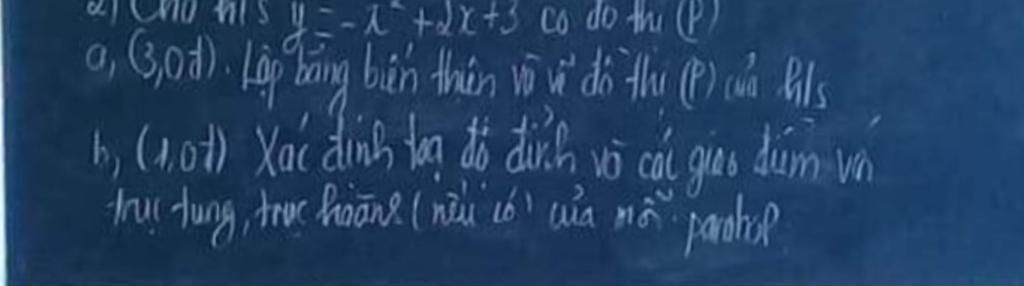 2) Cho h/s y = -x² + 2x + 3 có đồ thị (P)
a, (3,0đ). Lập bảng biến thiên và vẽ đồ thị (P) của h/s
b, (1,0đ) Xác định toạ độ đỉnh và các giao điểm với
trục tung, trục hoành (nếu có) của mỗi parabol.